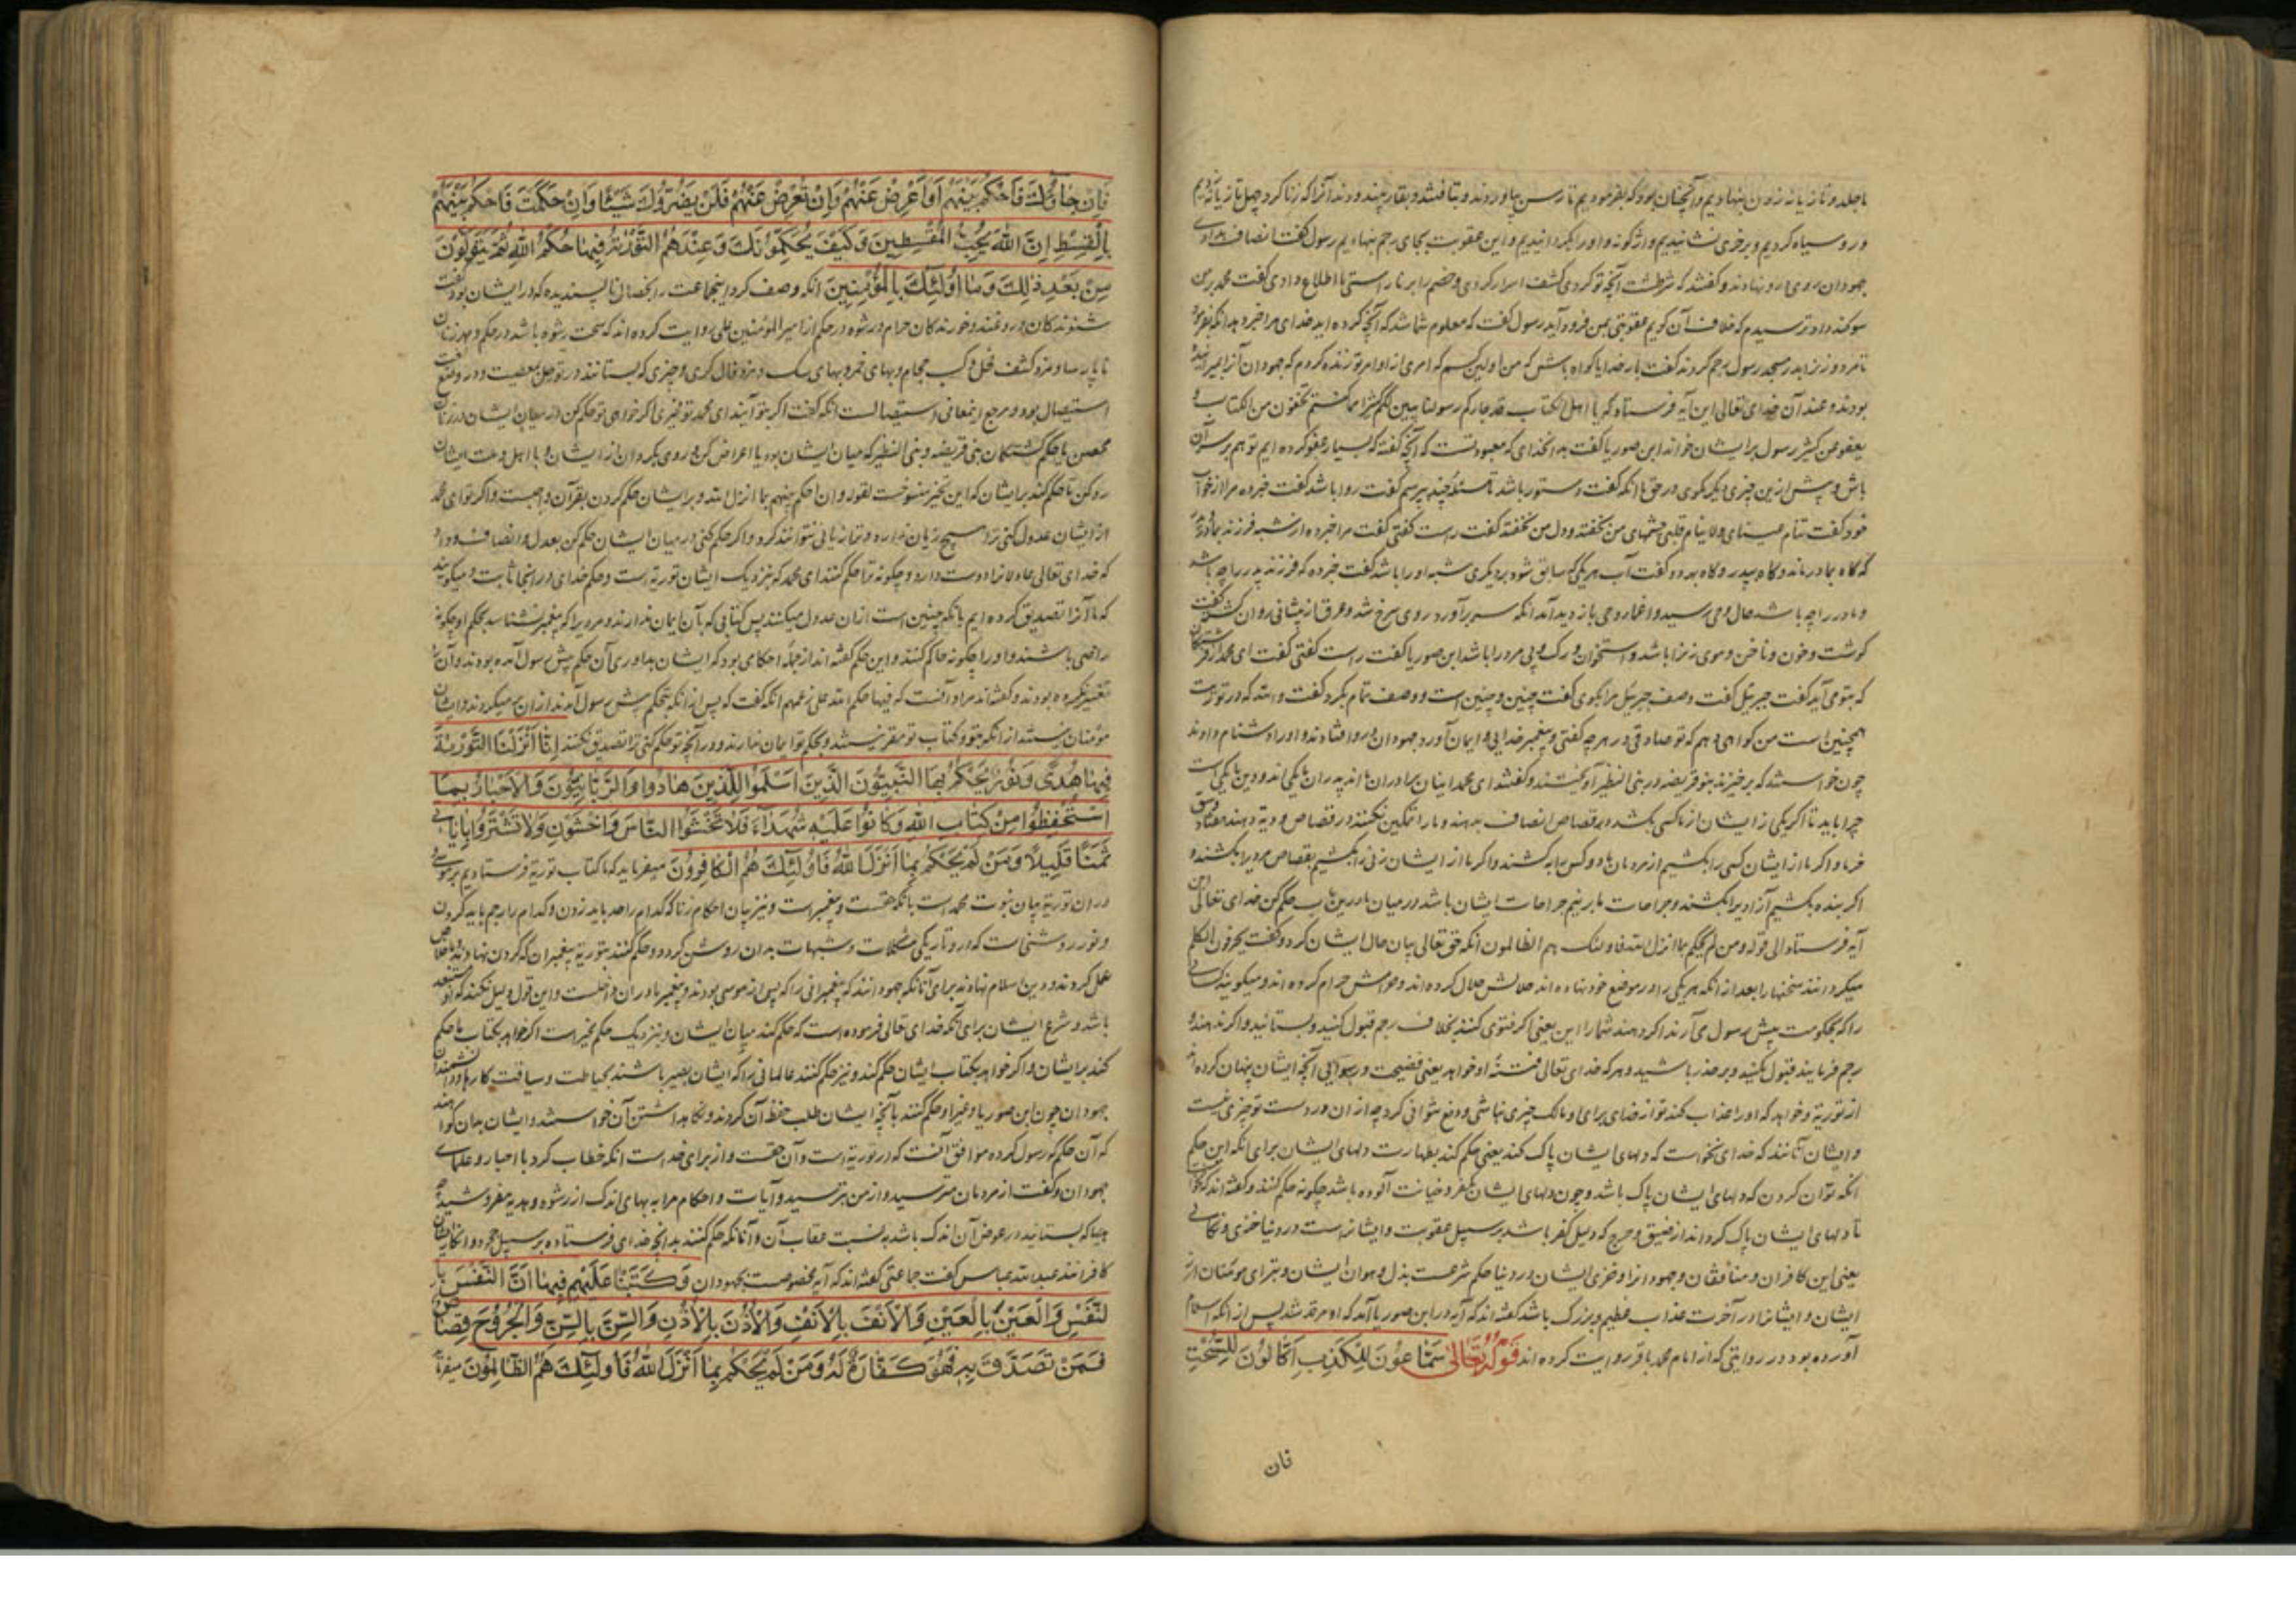 با جلد و تازیانه زدن بنهادیم و آنچنان بود که بفرمودیم تا رسن بیاوردند و بتافتند و بقار بیندودند آنرا که زنا کرد چهل تازیانه زدیم
و روسیاه کردیم و بر خری نشانیدیم واژگونه و او را بگردانیدیم و این عقوبت بجای رجم بنهادیم رسول گفت انصاف بدادی
جهودان روی بدو نهادند و گفتند که آنچه تو کردی کشف اسرار کردی و خصم را بر ناراستی ما اطلاع دادی گفت محمد بمن
سوگند داد ترسیدم که خلاف آن گویم عقوبتی بمن فرود آید رسول گفت که معلوم شما شد که آنچه کرده اید خدای مرا خبر دهد آنگه بفرمود
تا مرد و زن را بدر مسجد رسول رجم کردند گفت بار خدایا گواه باش که من اولین کسم که امری از اوامر تو زنده کردم که جهودان آنرا بمیرانیده
بودند و عند آن خدای تعالی این آیه فرستاد که یا اهل الکتاب قد جاءکم رسولنا یبین لکم کثیرا مما کنتم تخفون من الکتاب و
یعفو عن کثیر رسول بر ایشان خواند ابن صوریا گفت بدان خدای که معبود تست که آنچه گفته که بسیار عفو کرده ایم تو هم بر سر آن
باش و پیش ازین چیزی دیگر مگوی در حق ما آنگه گفت دستور باشد تا مسئلهٔ چند بپرسم گفت روا باشد گفت خبر ده مرا از خواب
خود گفت تنام عینای ولا ینام قلبی چشمهای من بخفتد و دل من نخفتد گفت راست گفتی گفت مرا خبر ده از شبه فرزند بمادر و پدر
که گاه بمادر ماند و گاه بپدر گفت آب هر یکی که سابق شود بر دیگری شبه او را باشد گفت خبر ده که فرزند پدر را چه باشد
و مادر را چه باشد حال وحی رسید و اغماء وحی بازدید آمد آنگه سر برآورد روی سرخ شده و عرق از پیشانی روان گشته گفت
گوشت و خون و ناخن و موی زن را باشد و استخوان و رگ و پی مرد را باشد ابن صوریا گفت راست گفتی گفت ای محمد از فرشتگان
که بتو می آید گفت جبریل گفت وصف جبریل مرا بگوی گفت چنین و چنین است و وصف تمام بکرد گفت والله که در توریت
همچنین است من گواهی دهم که تو صادقی در هر چه گفتی و پیغمبر خدایی و ایمان آورد جهودان درو افتادند و او را دشنام دادند
چون خواستند که برخیزند بنو قریضه در بنی النظیر آویختند و گفتند ای محمد اینان برادران مااند پدران ما یکی اند و دین ما یکی است
چرا باید تا اگر یکی از ایشان از ما کسی بکشد در قصاص انصاف بدهند و ما را تمکین نکنند در قصاص و دیه دهند هفتاد وسق
خرما و اگر ما از ایشان کسی را بکشیم از مردمان ما دو کس را بکشند و اگر ما از ایشان زنی را بکشیم بقصاص مردی را بکشند و
اگر بنده بکشیم آزادی را بکشند و جراحات ما بر نیم جراحات ایشان باشد در میان ما درین باب حکم کن خدای تعالی این
آیه فرستاد الی قوله ومن لم یحکم بما انزل الله فاولئک هم الظالمون آنگه حق تعالی بیان حال ایشان کرد و گفت یحرفون الکلم
میگردانند سخنها را بعد از آنکه هر یکی را در موضع خود نهاده اند حلالش حلال کرده اند و حرامش حرام کرده اند و میگویند کسانی
را که بحکومت پیش رسول می آرند اگر دهند شما را این یعنی اگر فتوی کنند بخلاف رجم قبول کنید و بستانید و اگر ندهند و
رجم فرمایند قبول نکنید و بر حذر باشید و هر که خدای تعالی فتنهٔ او خواهد یعنی فضیحت و رسوایی آنچه ایشان پنهان کرده اند
از توریة و خواهد که او را عذاب کند تو از خدای برای او مالک چیزی نباشی و دفع نتوانی کرد چه از آن در دست تو چیزی نیست
و ایشان آنانند که خدای نخواست که دلهای ایشان پاک کند یعنی حکم کند بطهارت دلهای ایشان برای آنکه این حکم
آنگه توان کردن که دلهای ایشان پاک باشد و چون دلهای ایشان بکفر و خیانت آلوده باشد چگونه حکم کنند و گفته اند که نخواست
تا دلهای ایشان پاک گرداند از ضیق و حرج که دلیل کفر باشد بر سبیل عقوبت و ایشانراست در دنیا خزی و نکالی
یعنی این کافران و منافقان و جهودانرا و خزی ایشان در دنیا حکم شرعست بذل و هوان ایشان و تبرای مومنان از
ایشان و ایشانرا در آخرت عذاب عظیم و بزرگ باشد گفته اند که آیه در ابن صوریا آمد که او مرتد شد پس از آنکه اسلام
آورده بود در روایتی که از امام محمد باقر روایت کرده اند قوله تعالی سَمَّاعُونَ لِلْكَذِبِ أَكَّالُونَ لِلسُّحْتِ
فان
فَاِنْ جَاؤُكَ فَاحْكُمْ بَيْنَهُمْ اَوْ اَعْرِضْ عَنْهُمْ وَاِنْ تُعْرِضْ عَنْهُمْ فَلَنْ يَضُرُّوكَ شَيْئًا وَاِنْ حَكَمْتَ فَاحْكُمْ بَيْنَهُمْ
بِالْقِسْطِ اِنَّ اللهَ يُحِبُّ الْمُقْسِطِينَ وَكَيْفَ يُحَكِّمُونَكَ وَعِنْدَهُمُ التَّوْرٰيةُ فِيهَا حُكْمُ اللهِ ثُمَّ يَتَوَلَّوْنَ
مِنْ بَعْدِ ذٰلِكَ وَمَا اُولٰئِكَ بِالْمُؤْمِنِينَ آنگه وصف کرد اینجماعت را بخصال ناپسندیده که در ایشان بود گفت
شنوندگان دروغند و خورندگان حرام و رشوه در حکم از امیر المؤمنین علی روایت کرده اند که سحت رشوه باشد در حکم و مهر زنان
نا پارسا و مزد کشف فحل و کسب حجام و بهای خمر و بهای سگ و مزد فال گری و چیزی که بستانند در توصل بمعصیت و در وضع لغت
استیصال بود و مرجع اینمعانی با استیصالست آنگه گفت اگر بتو آیند ای محمد تو مخیری اگر خواهی تو حکم کن در میان ایشان در زنان
محصن یا حکم کشتگان بنی قریضه و بنی النظیر که میان ایشان بود یا اعراض کن و روی بگردان از ایشان و با اهل ملت ایشان
رد کن تا حکم کند بر ایشان که این تخیر منسوخست لقوله وان احکم بینهم بما انزل الله و بر ایشان حکم کردن بقرآن واجبست و اگر تو ای محمد
از ایشان عدول کنی ترا هیچ زیان ندارد و ترا زیانی نتوانند کرد و اگر حکم کنی در میان ایشان حکم کن بعدل و انصاف و داد
که خدای تعالی عادلانرا دوست دارد و چگونه ترا حاکم کنند ای محمد که بنزدیک ایشان توریة است و حکم خدای در آنجا ثابت و میگویند
که ما آنرا تصدیق کرده ایم با آنکه چنین است از آن عدول میکنند پس کتابی که بآن ایمان ندارند و مردی را که پیغمبر نشناسند بحکم او چگونه
راضی باشند و او را چگونه حاکم کنند و این حکم گفته اند از جملهٔ احکامی بود که ایشان بداوری آن حکم پیش رسول آمده بودند و آن را
تغییر نکرده بودند و گفته اند مراد آنست که فیها حکم الله علی زعمهم آنگه گفت که پس از آنکه بتحکم پیش رسول آمدند از آن بر میگردند و ایشان
مؤمنان نیستند از آنکه بتو و کتاب تو مقر نیستند و بحکم تو ایمان ندارند و در آنچه تو حکم کنی ترا تصدیق نکنند اِنَّا اَنْزَلْنَا التَّوْرٰيةَ
فِيهَا هُدًى وَنُورٌ يَحْكُمُ بِهَا النَّبِيُّونَ الَّذِينَ اَسْلَمُوا لِلَّذِينَ هَادُوا وَالرَّبَّانِيُّونَ وَالْاَحْبَارُ بِمَا
اسْتُحْفِظُوا مِنْ كِتَابِ اللهِ وَكَانُوا عَلَيْهِ شُهَدَاءَ فَلَا تَخْشَوُا النَّاسَ وَاخْشَوْنِ وَلَا تَشْتَرُوا بِاٰيَاتِي
ثَمَنًا قَلِيلًا وَمَنْ لَمْ يَحْكُمْ بِمَا اَنْزَلَ اللهُ فَاُولٰئِكَ هُمُ الْكَافِرُونَ میفرماید که ما کتاب توریة فرستادیم بر موسی و
در آن توریة بیان نبوت محمد است بآنکه حقست و پیغمبر است و نیز بیان احکام زنا که کدام را حد باید زدن و کدام را رجم باید کردن
و نور روشنی است که در تاریکی مشکلات و شبهات بدان روشن گردد و حکم کنند بتوریة پیغمبران که گردن نهادند و باخلاص
عمل کردند و دین اسلام نهادند برای آنانکه جهودانند که پیغمبرانی را که پس از موسی بودند و پیغمبر ما در آن داخلست و این قول دلیل نکند که او متعبد
باشد و شرع ایشان برای آنکه خدای تعالی فرموده است که حکم کند میان ایشان و بنزدیک حکم مخیر است اگر خواهد بکتاب ما حکم
کند بر ایشان و اگر خواهد بکتاب ایشان حکم کند و نیز حکم کنند عالمانی را که ایشان بصیر باشند بحیاطت و سیاقت کارها و دانشمندان
جهودان چون ابن صوریا و غیر او حکم کنند بآنچه ایشان طلب حفظ آن کردند و نگاهداشتن آن خواستند و ایشان بدان گواهند
که آن حکم که رسول کرده موافق آنست که در توریة است و آن حقست و از برای خداست آنگه خطاب کرد با احبار و علمای
جهودان و گفت از مردمان مترسید و از من بترسید و آیات و احکام مرا به بهای اندک از رشوه و هدیه مفروشید چه
بهاکه بستانید در عوض آن اندک باشد به نسبت عقاب آن و آنانکه حکم نکنند بدانچه خدای فرستاده بر سبیل جحود و انکار ایشان
کافرانند عبد الله عباس گفت جماعتی گفته اند که آیه مخصوصست بجهودان وَكَتَبْنَا عَلَيْهِمْ فِيهَا اَنَّ النَّفْسَ بِا
لنَّفْسِ وَالْعَيْنَ بِالْعَيْنِ وَالْاَنْفَ بِالْاَنْفِ وَالْاُذُنَ بِالْاُذُنِ وَالسِّنَّ بِالسِّنِّ وَالْجُرُوحَ قِصَاصٌ
فَمَنْ تَصَدَّقَ بِهِ فَهُوَ كَفَّارَةٌ لَهُ وَمَنْ لَمْ يَحْكُمْ بِمَا اَنْزَلَ اللهُ فَاُولٰئِكَ هُمُ الظَّالِمُونَ میفرماید